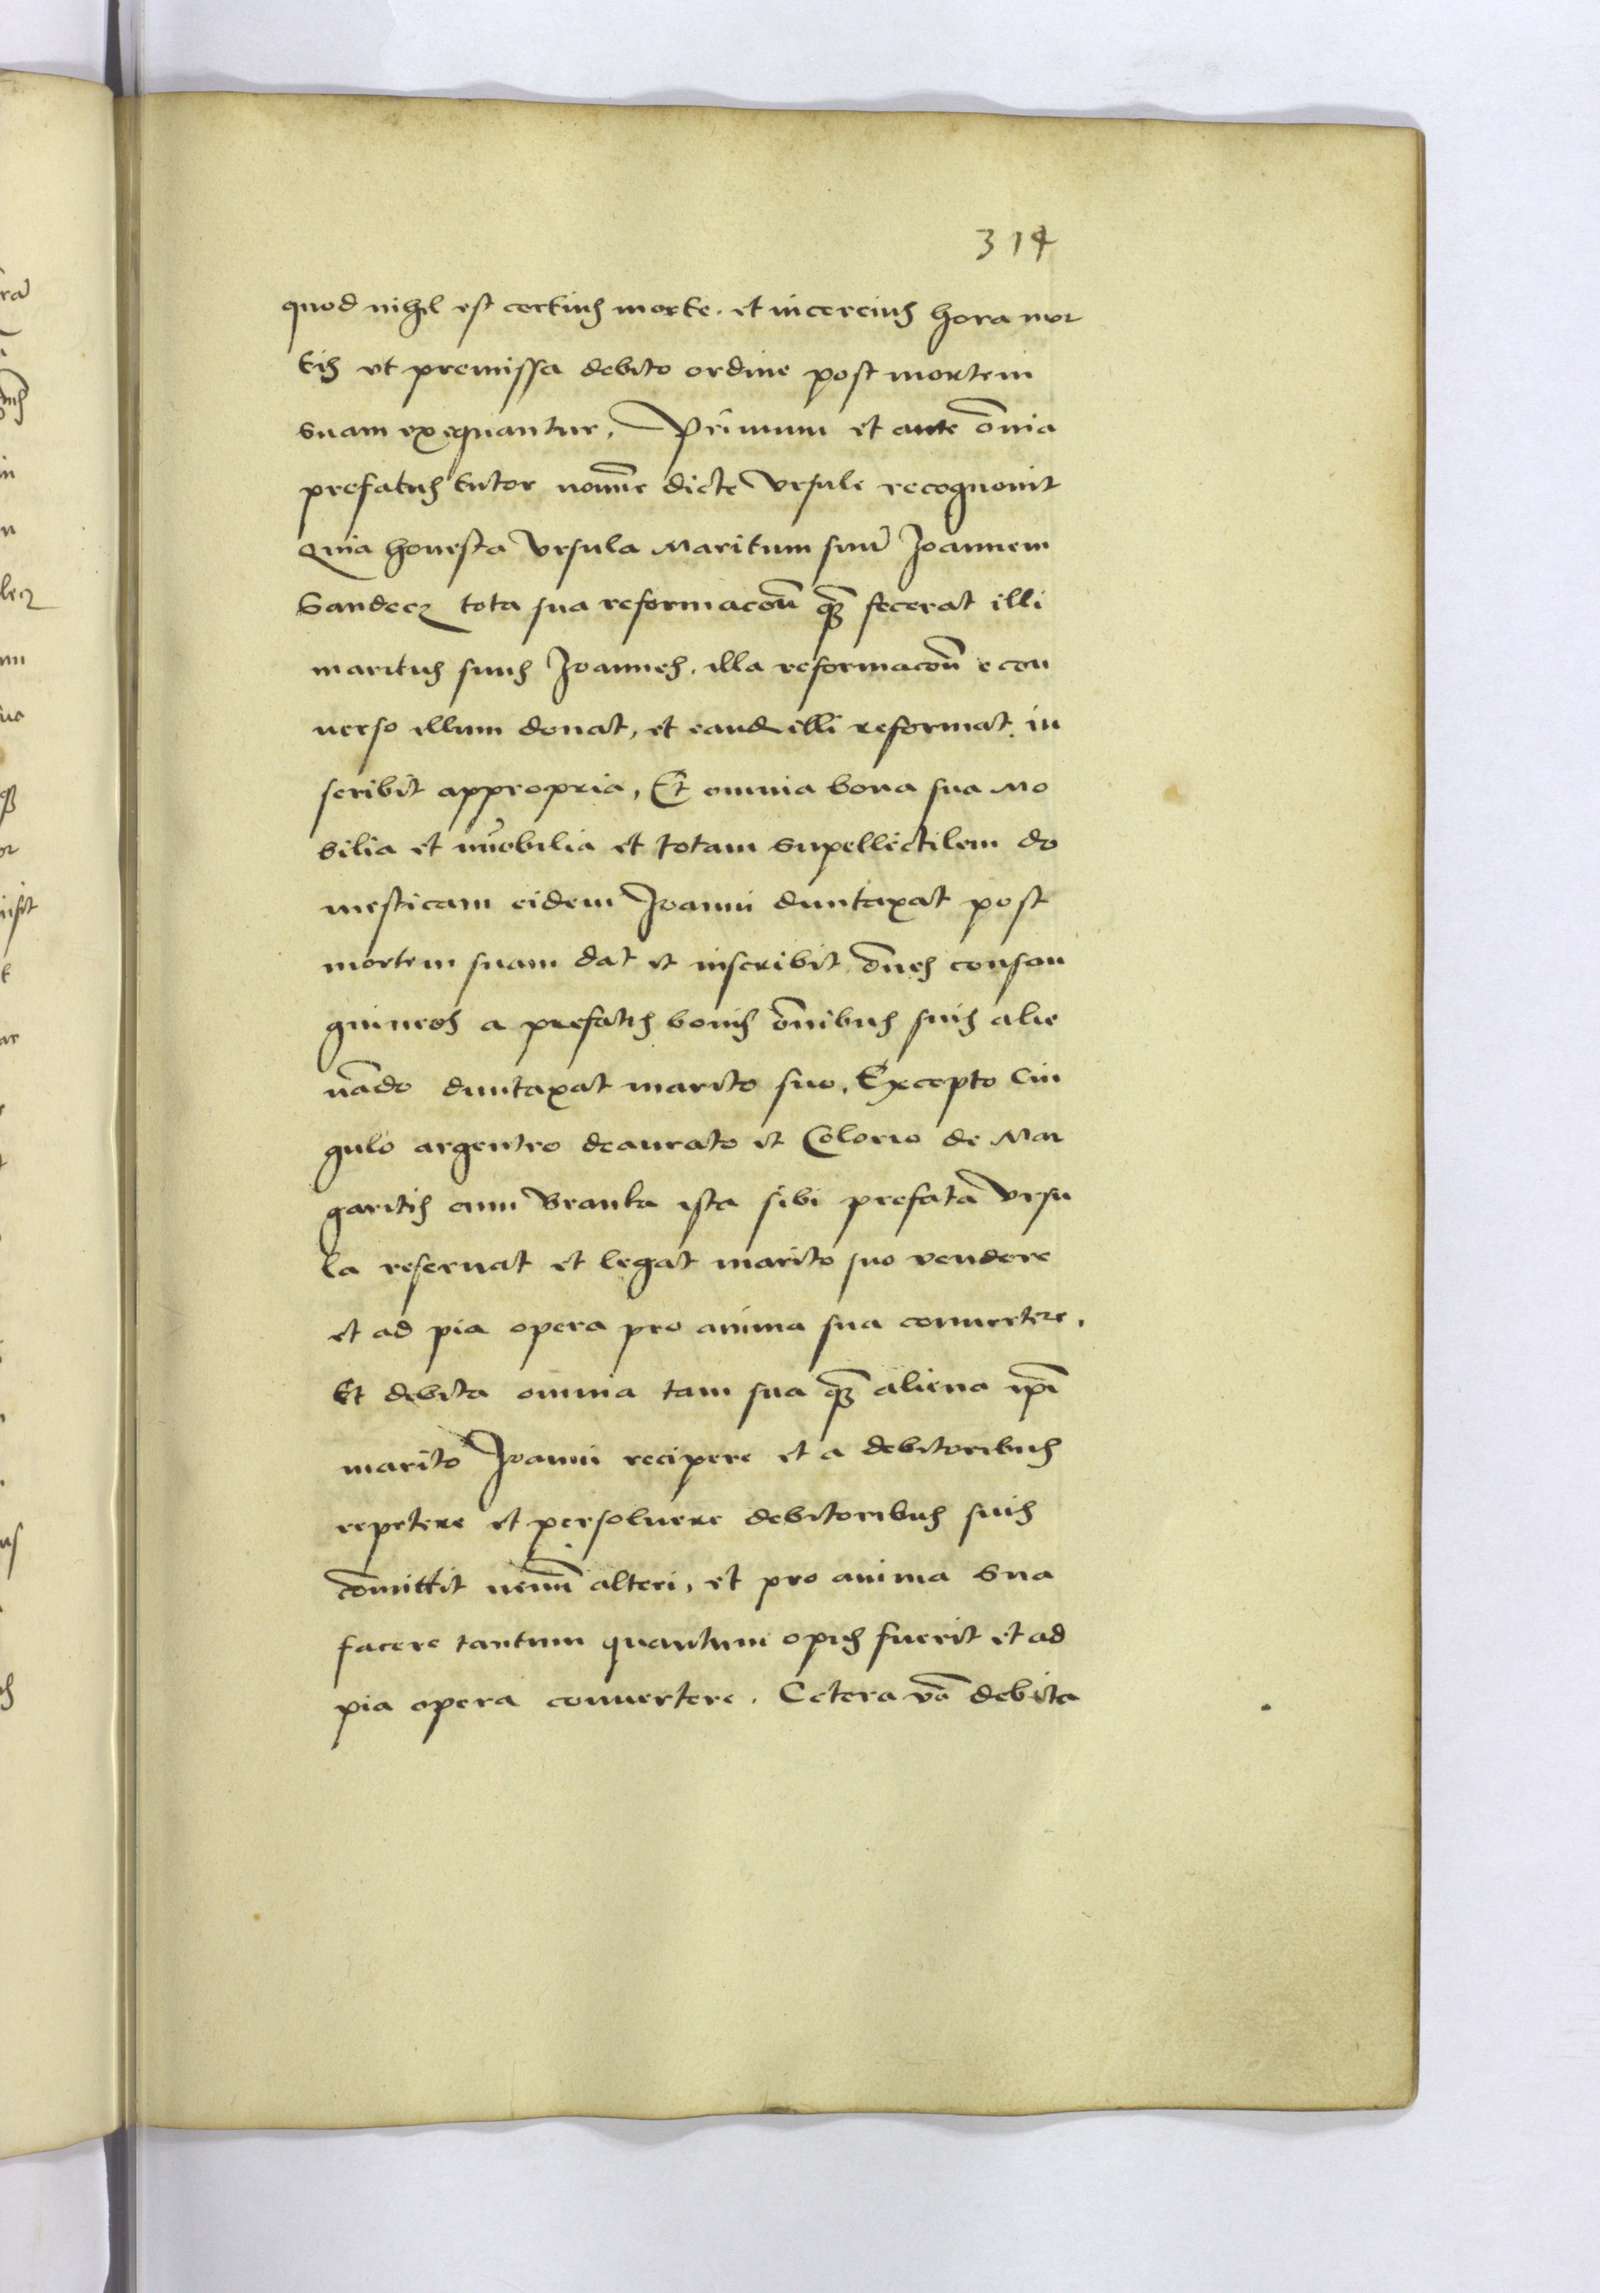 314
quod nihil est certius morte. et incercius hora mor
tis ut premissa debito ordine post mortem
suam exequantur. Primum et ante o͞mia
prefatus tutor nomi͞e dicte Vrsule recognouit
Quia honesta Vrsula Maritum suu͞ Joannem
Sandecz tota sua reformaco͞n q͞z fecerat illi
maritus suus Joannes. illa reformaco͞n e con
uerso illum donat, et eand illi reformat. in
scribit appropria, Et omnia bona sua Mo
bilia et im͞obilia et totam supellectilem do
mesticam eidem Joanni duntaxat post
mortem suam dat et inscribit o͞nes consan
guineos a prefatis bonis o͞nibus suis alie
na͞do duntaxat marito suo, Excepto Cin
gulo argenteo deaurato et Colorio de Mar
garitis cum Bramka ista sibi prefata Vrsu
la reseruat et legat marito suo vendere
et ad pia opera pro anima sua conuertere,
Et debita omnia tam sua q͞z aliena ip͞i
marito Joanni recipere et a debitoribus
repetere et persoluere debitoribus suis
co͞mittit nemi͞ alteri, et pro anima sua
facere tantum quantum opus fuerit et ad
pia opera conuertere. Cetera vo͞ debita